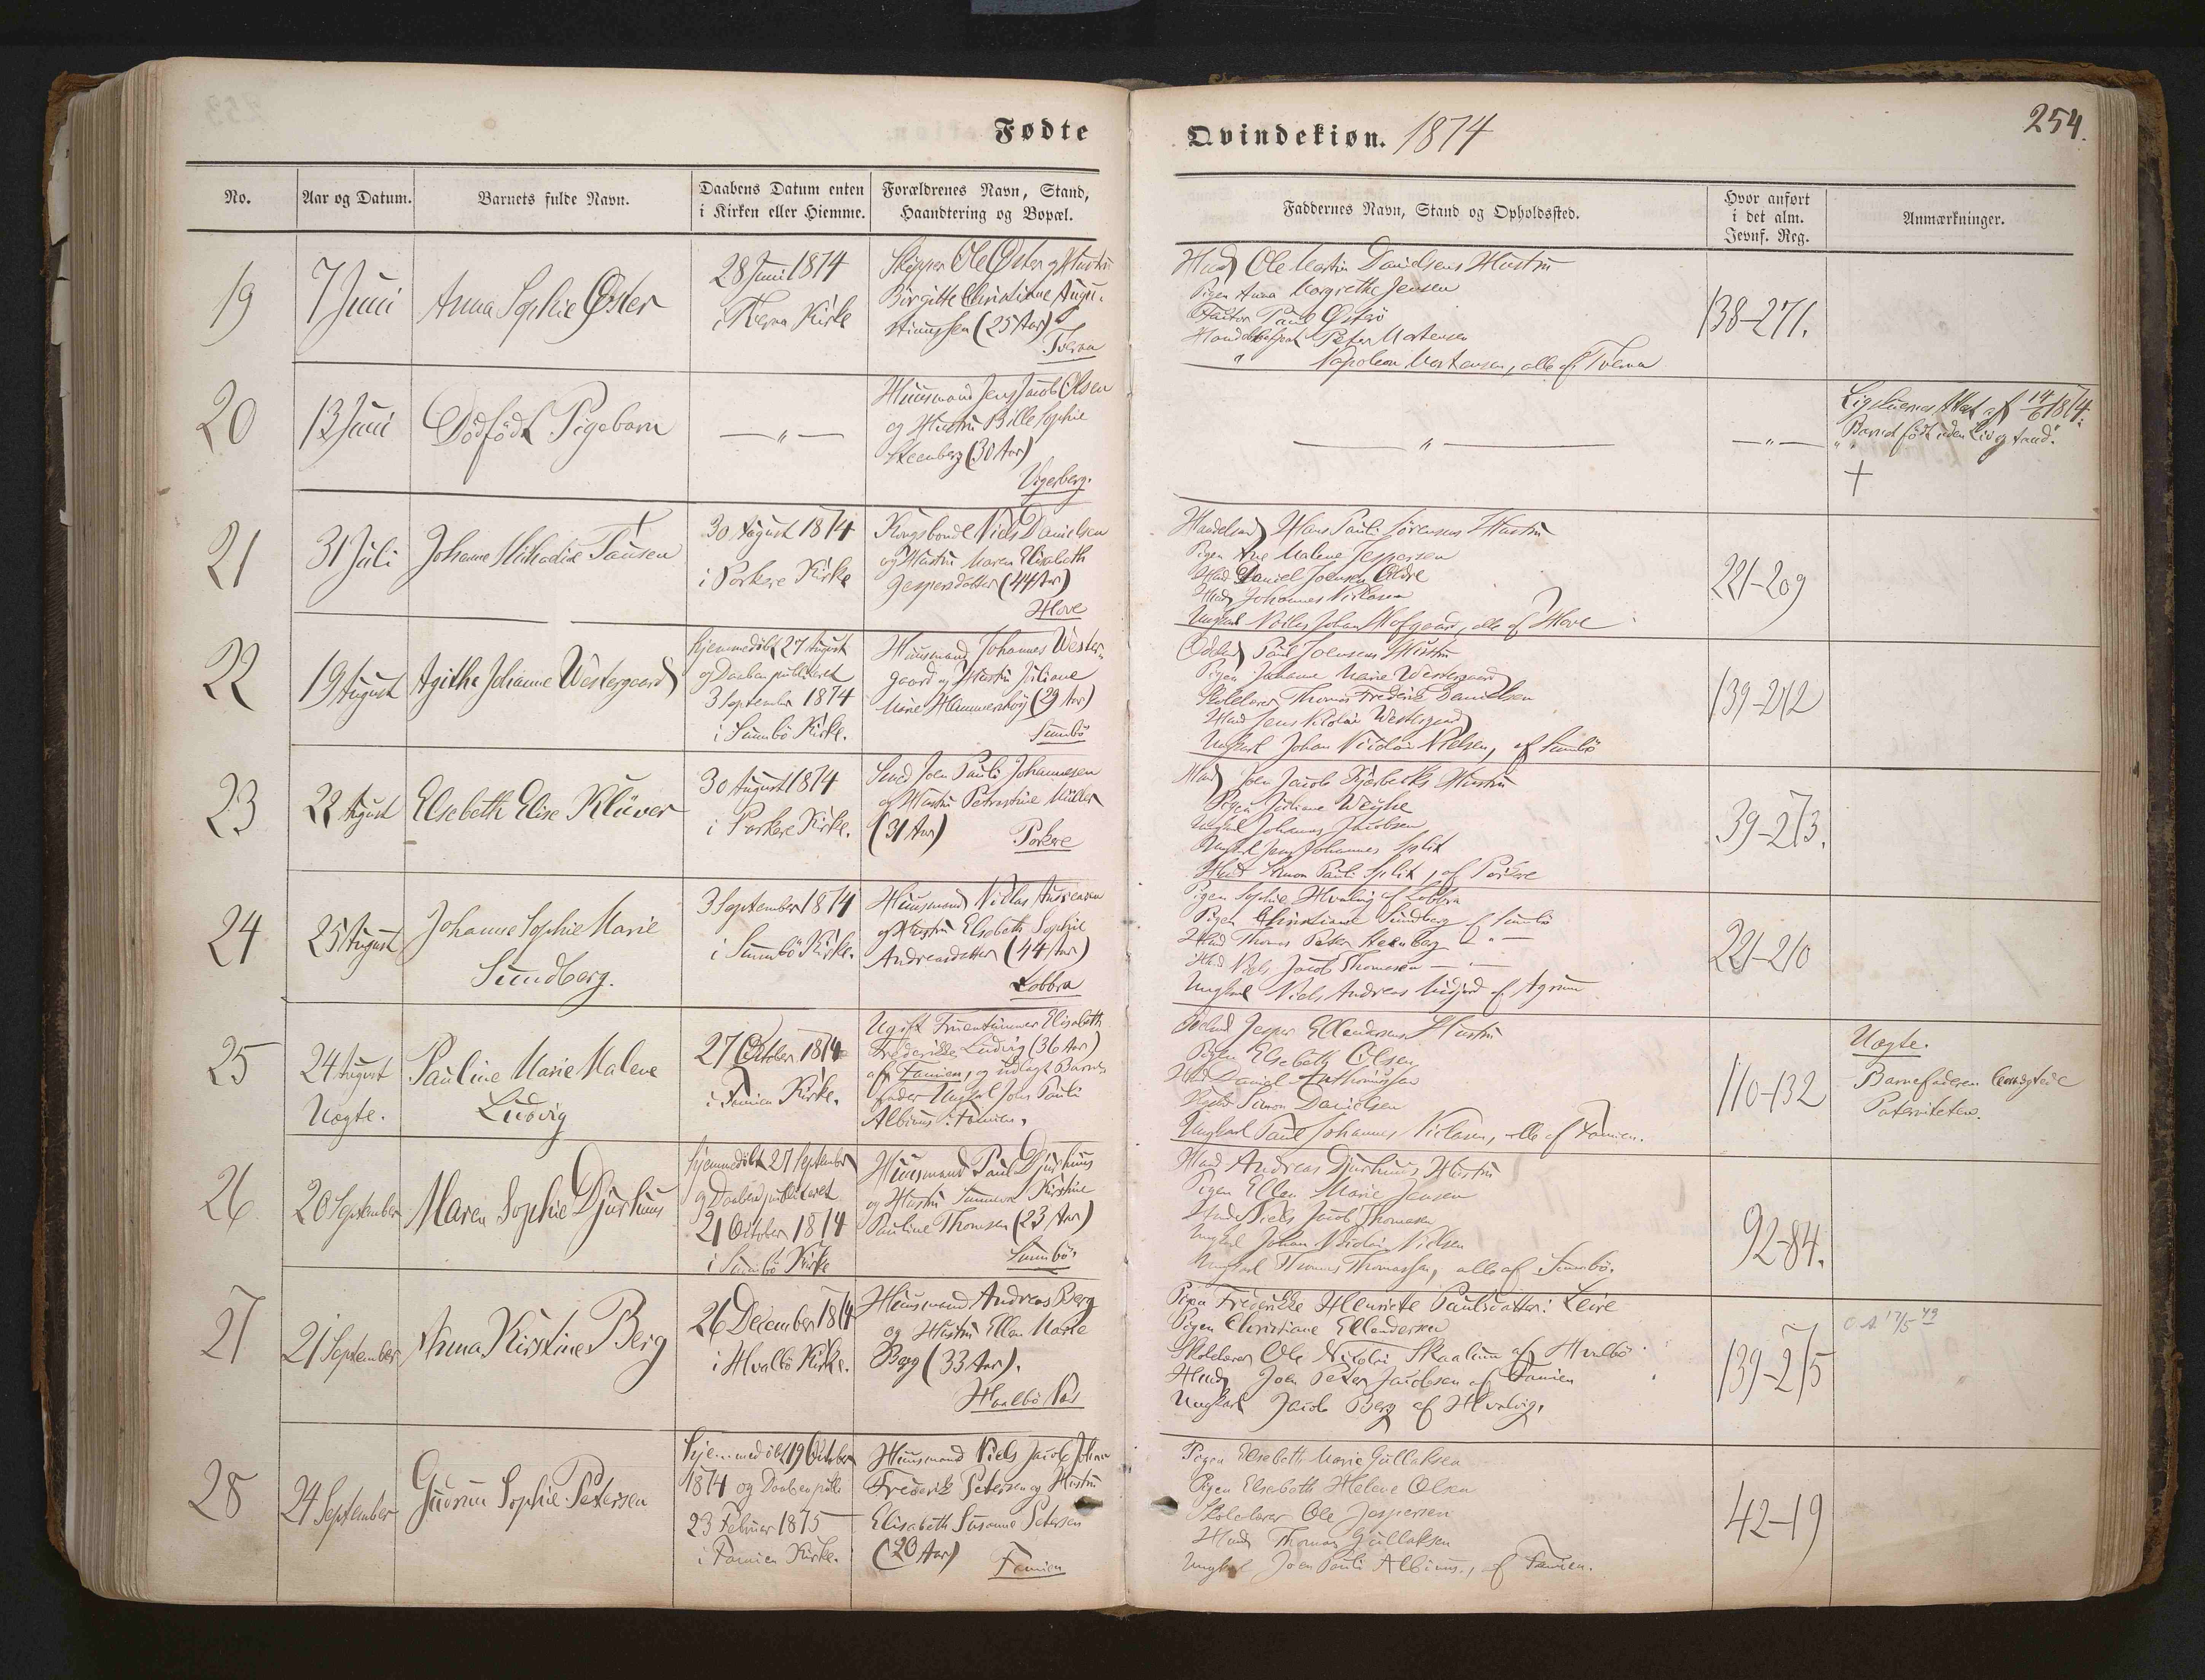 Fødte
Qvindekiøn. 1874
254.
No.
Aar og Datum.
Barnets fulde Navn.
Daabens Datum enten
i Kirken eller Hiemme.
Forældrenes Navn, Stand,
Haandtering og Bopæl.
Faddernes Navn, Stand og Opholdssted.
Hvor anført
i det alm.
Jevnf. Reg.
Anmærkninger.
19
7 Juni
Anna Sophie Øster
28 Juni 1874
i Tveraa Kirke
Skipper Ole Øster og Hustru
Birgitte Christiane Augu-
stinussen (25 Aar)
Tveraa
Ole Martin Davidsens Hustru
Pigen Anna Margrethe Jensen
Poul
Peter Mortensen
" Napoleon Mortensen, alle af Tveraa
138-271.
20
13 Juni
Dødfødt Pigebarn
— " —
Huusmand Jens Jacob Olsen
og Hustru Bille Sophie
Steenberg (30 Aar)
Vegerberg.
— " —
— " —
Ligsynsmds. Attest af 14/6 1874.
"Barnet født uden Liv og Aand."
+
21
31 Juli
Johanne Mithadia Tausen
30 August 1874
i Porkere Kirke
Kongsbonde Niels Danielsen
og Hustru Maren Elisabeth
Jespersdatter (44 Aar)
Hove
Handelsmd Hans Pauli Sørensens Hustru
Pigen Ane Malene Jespersen
Daniel Joensen Ældre
Johannes Niclasen
Ungkarl Niclas Johan Hofgaard, alle af Hove
221-209
22
19 August
Agithe Johanne Westergaard
hjemmedøbt 27 August
og Daaben publiceret
3 September 1874
i Sumbø Kirke.
Huusmand Johannes Wester-
gaard og Hustru Juliane
Marie Hammershøj (29 Aar)
Sumbø
Poul Joensens Hustru
Pigen Johanne Marie Westergaard
Skolelærer Thomas Frederik Danielsen
Jens Nicolai Westergaard
Ungkarl Johan Nicolai Nielsen, af Sumbø
139-272
23
22 August
Elsebeth Elise Klüver
30 August 1874
i Porkere Kirke.
Smed Joen Pauli Johannesen
og Hustru Petrestine Müller
(31 Aar)
Porkere
Joen Jacob Kjærbæks Hustru
Pigen Juliane Weyhe
Ungkarl Johannes Jacobsen
Ungkarl Jens Johannes Split
Simon Pauli Split, af Porkere
39-273.
24
25 August
Johanne Sophie Marie
Sundberg.
3 September 1874
i Sumbø Kirke.
Huusmand Niclas Andreasen
og Hustru Elsebeth Sophie
Andreasdatter (44 Aar)
Lobbra
Pigen Sophie af Lobbra
Pigen Christiane Sundberg af Sumbø
Thomas Peter Steenberg — " —
Niels Jacob Thomesen — " —
Ungkarl Niels Andreas af
221-210
25
24 August
Uægte.
Pauline Marie Malene
Ludvig
27 October 1874
i Famien Kirke.
Ugift Fruentimmer Elisabeth
Frederikke Ludvig (36 Aar)
af Famien, og udlagt Barne-
fader Ungkarl Joen Pauli
Albinus i Famien.
Jesper Ellendersens Hustru
Pigen Elsebeth Olsen
Daniel
Simon Danielsen
Ungkarl Poul Johannes Niclasen, alle af Famien.
110-132
Uægte.
Barnefaderen benægtede
Paterniteten.
26
20 September
Maren Sophie Djurhuus
hjemmedøbt 27 September
og Daaben publiceret
21 October 1874
i Sumbø Kirke
Huusmand Poul Djurhuus
og Hustru Sunneva Kirstine
Pauline Thomsen (23 Aar)
Sumbø.
Andreas Djurhuus Hustru
Pigen Ellen Marie Jensen
Niels Jacob Thomesen
Ungkarl Johan Nicolai Nielsen
Ungkarl Thomas Thomassen, alle af Sumbø.
92-84.
27
21 September
Anna Kirstine Berg
26 December 1874
i Hvalbø Kirke.
Huusmand Andreas Berg
og Hustru Ellen Marie
Berg (33 Aar).
Hvalbø Nes
Pigen Frederikke Henriette Poulsdatter i
Pigen Christiane Ellendersen
Skolelærer Ole Nicolai Skaalum af Hvalbø
Joen Peter Jacobsen af Famien
Ungkarl Jacob Berg af Hvalvig.
139-275
28
24 September
Gudrun Sophie Petersen
hjemmedøbt 19 October
1874 og Daaben publ.
23 Februar 1875
i Famien Kirke.
Huusmand Niels Jacob Johan
Frederik Petersen og Hustru
Elisabeth Susanne Petersen
(20 Aar)
Famien
Pigen Elsebeth Marie Gullaksen
Pigen Elsebeth Helene Olsen
Skolelærer Ole Jespersen
Thomas Gullaksen
Ungkarl Joen Pauli Albinus, af Famien.
42-19